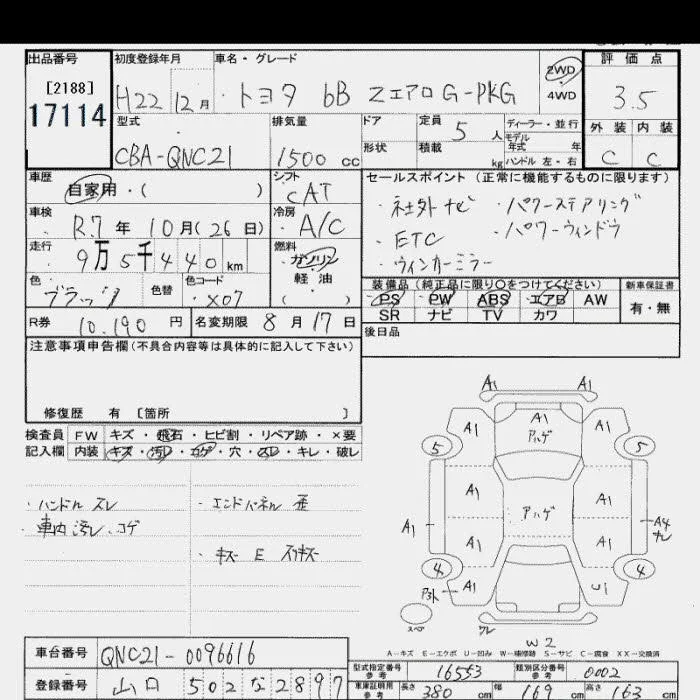 出品番号 初度登録年月 車名・グレード 評価点
[2188] 17114
H22 12月 ・トヨタ bB ZエアロG-PKG 2WD 4WD 3.5
型式 排気量 ドア 定員 5人 ディーラー・並行 外装 内装
モデル年式 年
CBA-QNC21 1500cc 形状 積載 kg ハンドル 左・右 C C
車歴 シフト セールスポイント (正常に機能するものに限ります)
自家用・( ) CAT
・社外ナビ ・パワーステアリング
車検 冷房
R.7年 10月(26日) A/C
・ETC ・パワーウィンドウ
走行 燃料
9万5千440km ガソリン
・ウィンカーミラー
軽油
( )
色 色替 色コード 装備品 (純正品に限り○をつけてください) 新車保証書
ブラック X07 PS PW ABS エアB AW 有・無
SR ナビ TV カワ
R券 10.190円 名変期限 8月17日 後日品
注意事項申告欄 (不具合内容等は具体的に記入して下さい)
修復歴 有 [箇所 ]
検査員 FW キズ・飛石・ヒビ割・リペア跡・×要
記入欄 内装 キズ・汚レ・コゲ・穴・スレ・キレ・破レ
・ハンドル スレ ・エンドパネル 歪
・車内汚レ.コゲ
・キズ E スリキズ
A1 A1
A1 A1 A1
アハゲ
5 5
A1 A1
アハゲ
A1 A1 A1 A4
4 4
A1 U1
スペア
W2
A-キズ E-エクボ U-凹み W-補修跡 S-サビ C-腐食 XX-交換済
車台番号 QNC21-0096616
型式指定番号 参考 16553 類別区分番号 参考 0002
登録番号 山口 502な2897
車庫証明用 参考 長さ 380cm 幅 169cm 高さ 163cm